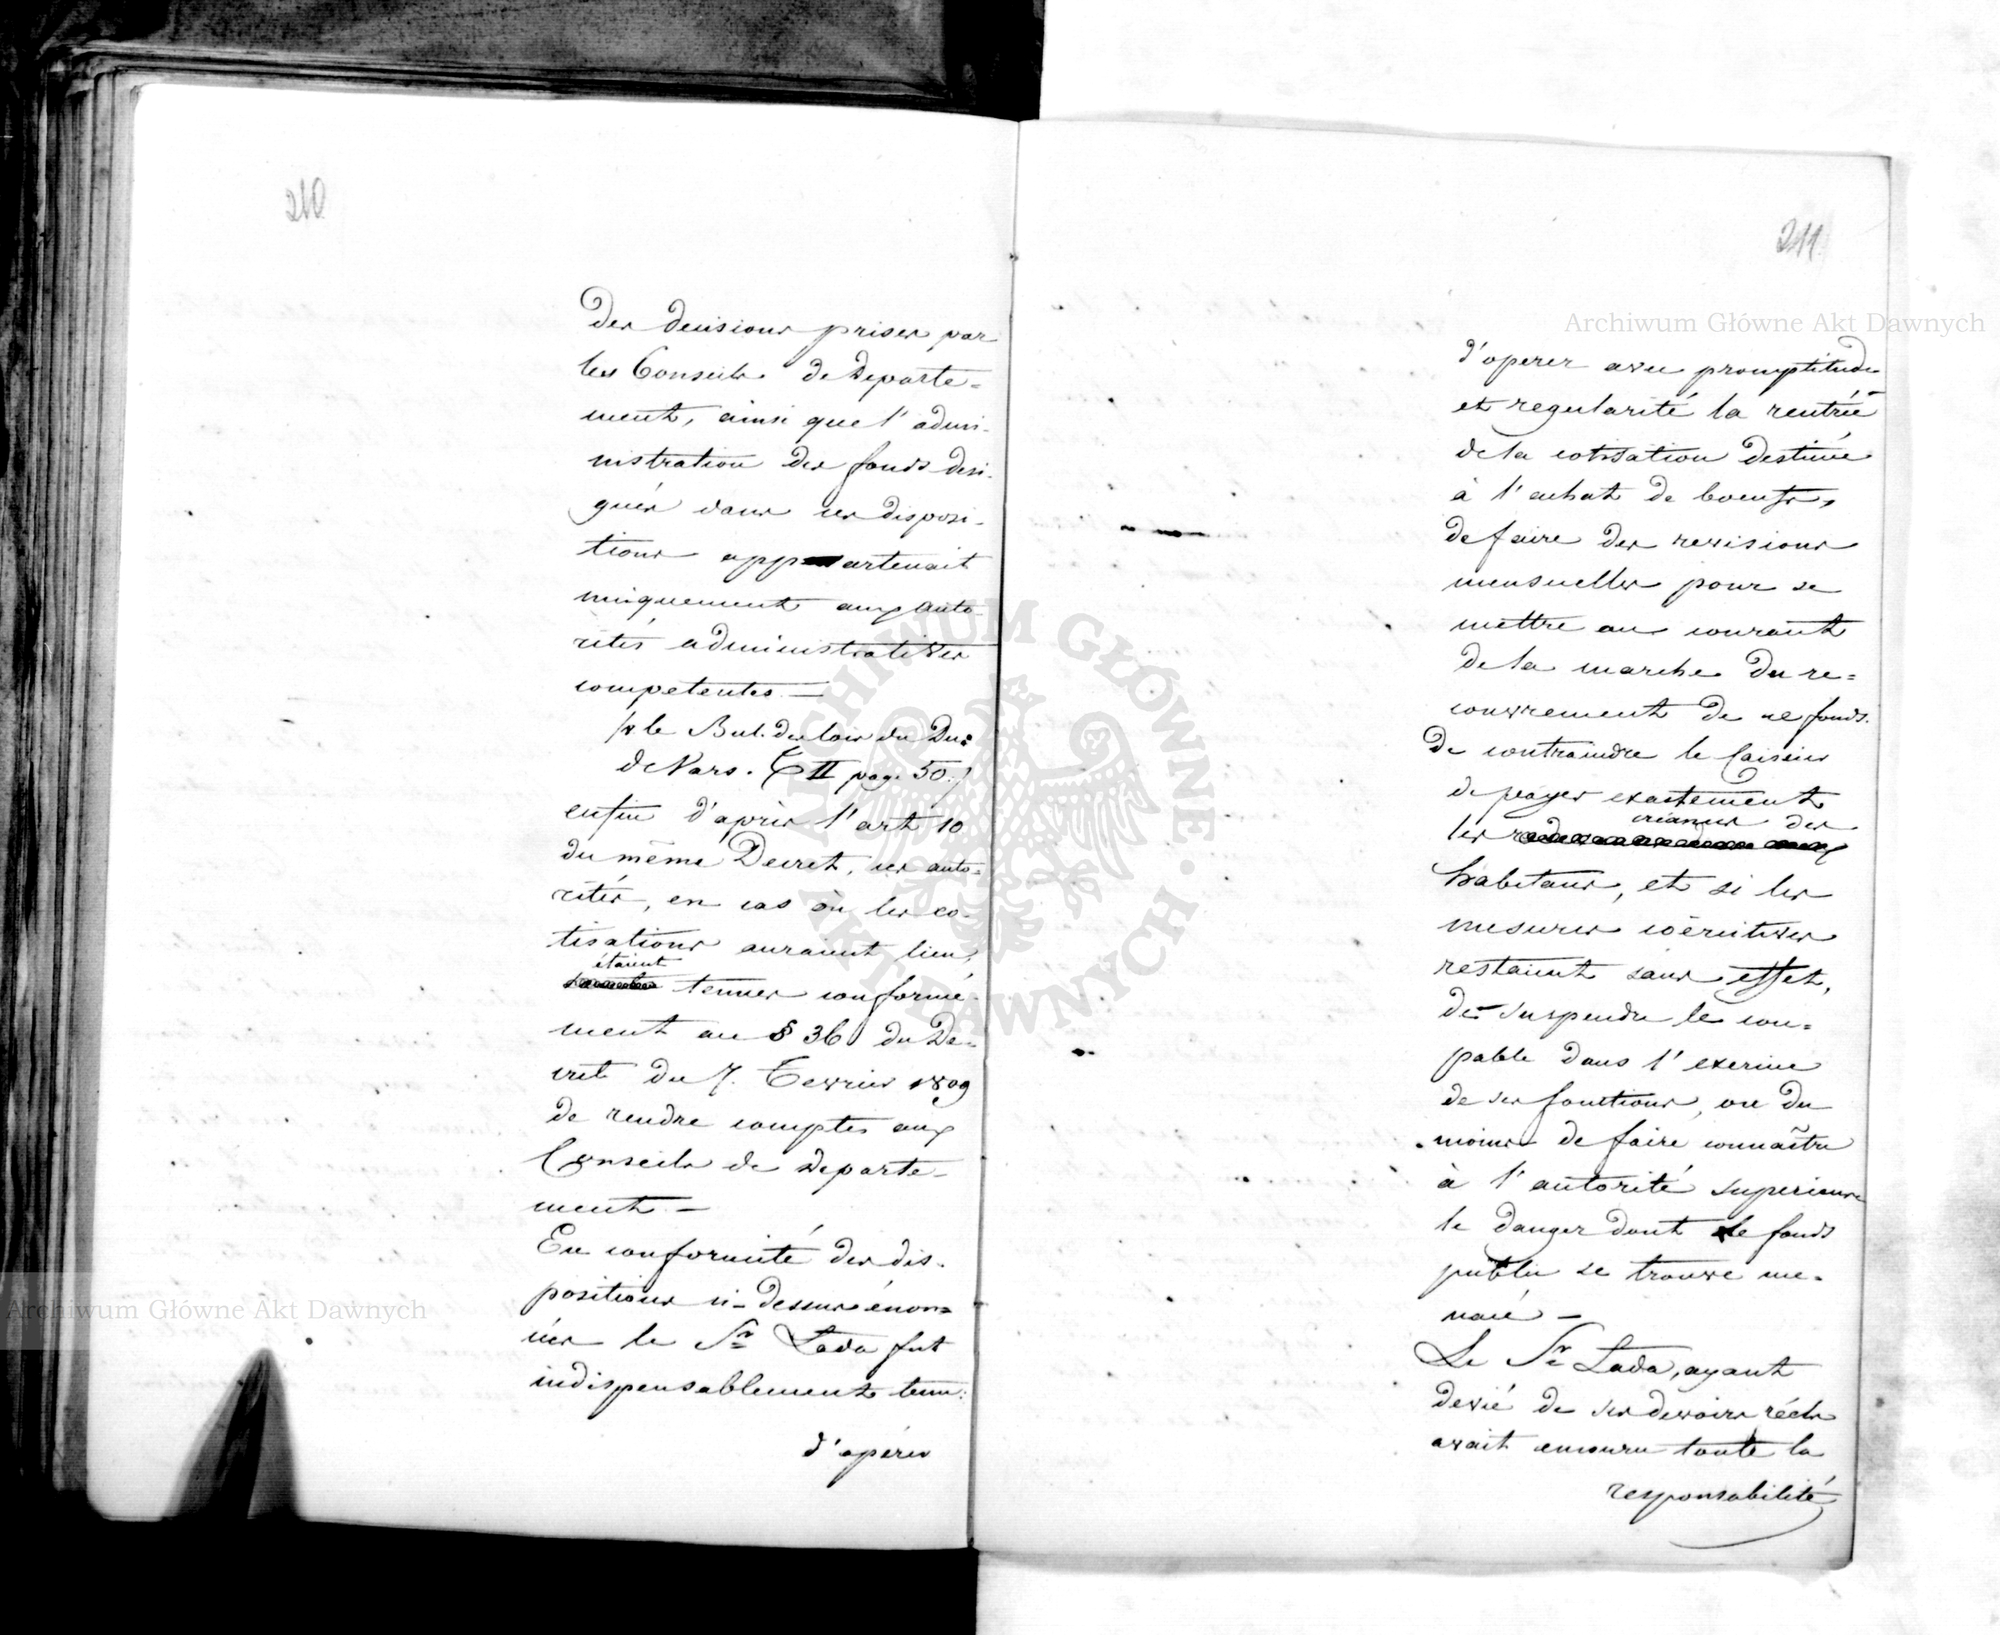 210
Des decisions prises par
les Conseils de Departe=
ment, ainsi que l'admi-
nistration des fonds desi-
gnés dans ces disposi-
tions appartenait
uniquement aux auto-
rités administratives
competentes. —
/v le Bul. des lois du Du:
de Vars. T II pag. 50./
enfin d'après l'art 10
du même Decret, ces auto=
rités, en cas où les co-
tisations auraient lieu,
étaient
tenues conformé-
ment au § 36 du De-
cret du 7. Fevrier 1809
de rendre comptes aux
Conseils de Departe-
ment. —
En conformité des dis-
positions ci-dessus énon=
cées le Sr Lada fut
indispensablement tenu:
d'opérer
211.
d'operer avec promptitude
et regularité la rentrée
de la cotisation destinée
à l'achat de boeufs,
de faire des revisions
mensuelles pour se
mettre au courant
de la marche du re=
couvrement de ce fonds.
De contraindre le Caissier
de payer exactement
créances des
les
habitans, et si les
mesures coërcitives
restaient sans effet,
de suspendre le cou=
pable dans l'exercice
de ses fonctions, ou du
moins de faire connaître
à l'autorité superieure
le danger dont le fonds
public se trouve me=
nacé —
Le Sr Lada, ayant
devié de ses devoirs réels
avait encouru toute la
responsabilité
Archiwum Główne Akt Dawnych
Archiwum Główne Akt Dawnych
ARCHIWUM GŁÓWNE AKT DAWNYCH